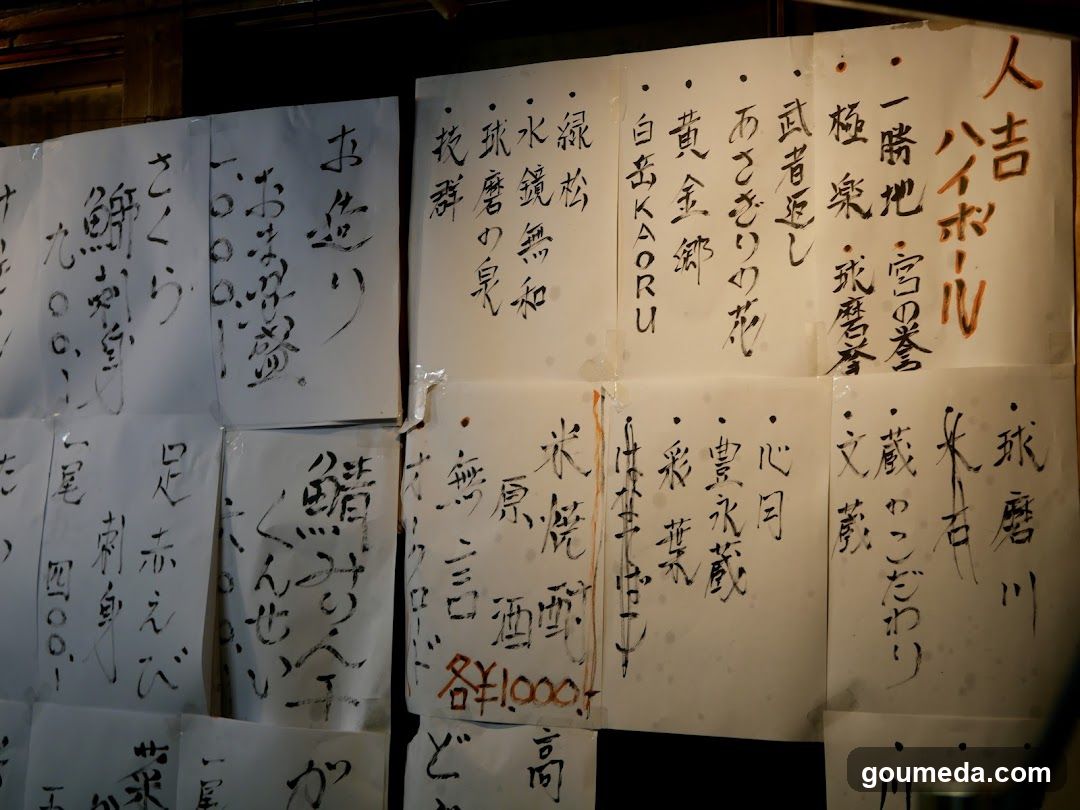 人吉
ハイボール
・一勝地 ・宮の誉
・極楽 ・球磨誉
・武者返し
・あさぎりの花
・黄金郷
・白岳KAORU
・緑松
・水鏡無和
・球磨の泉
・技群
・球磨川
・水石
・蔵のこだわり
・文蔵
・心月
・豊永蔵
・彩葉
・はなてばこ
米焼酎
原酒
・無言
・オークロード
各¥1000,-
お造り
おまかせ盛
一、〇〇〇、-
さくら
鰤刺身
九〇〇、-
鯖みりん干
くんせい
六〇〇、-
足赤えび
刺身
一尾 四〇〇、-
高
ど
が
一尾
菜
goumeda.com